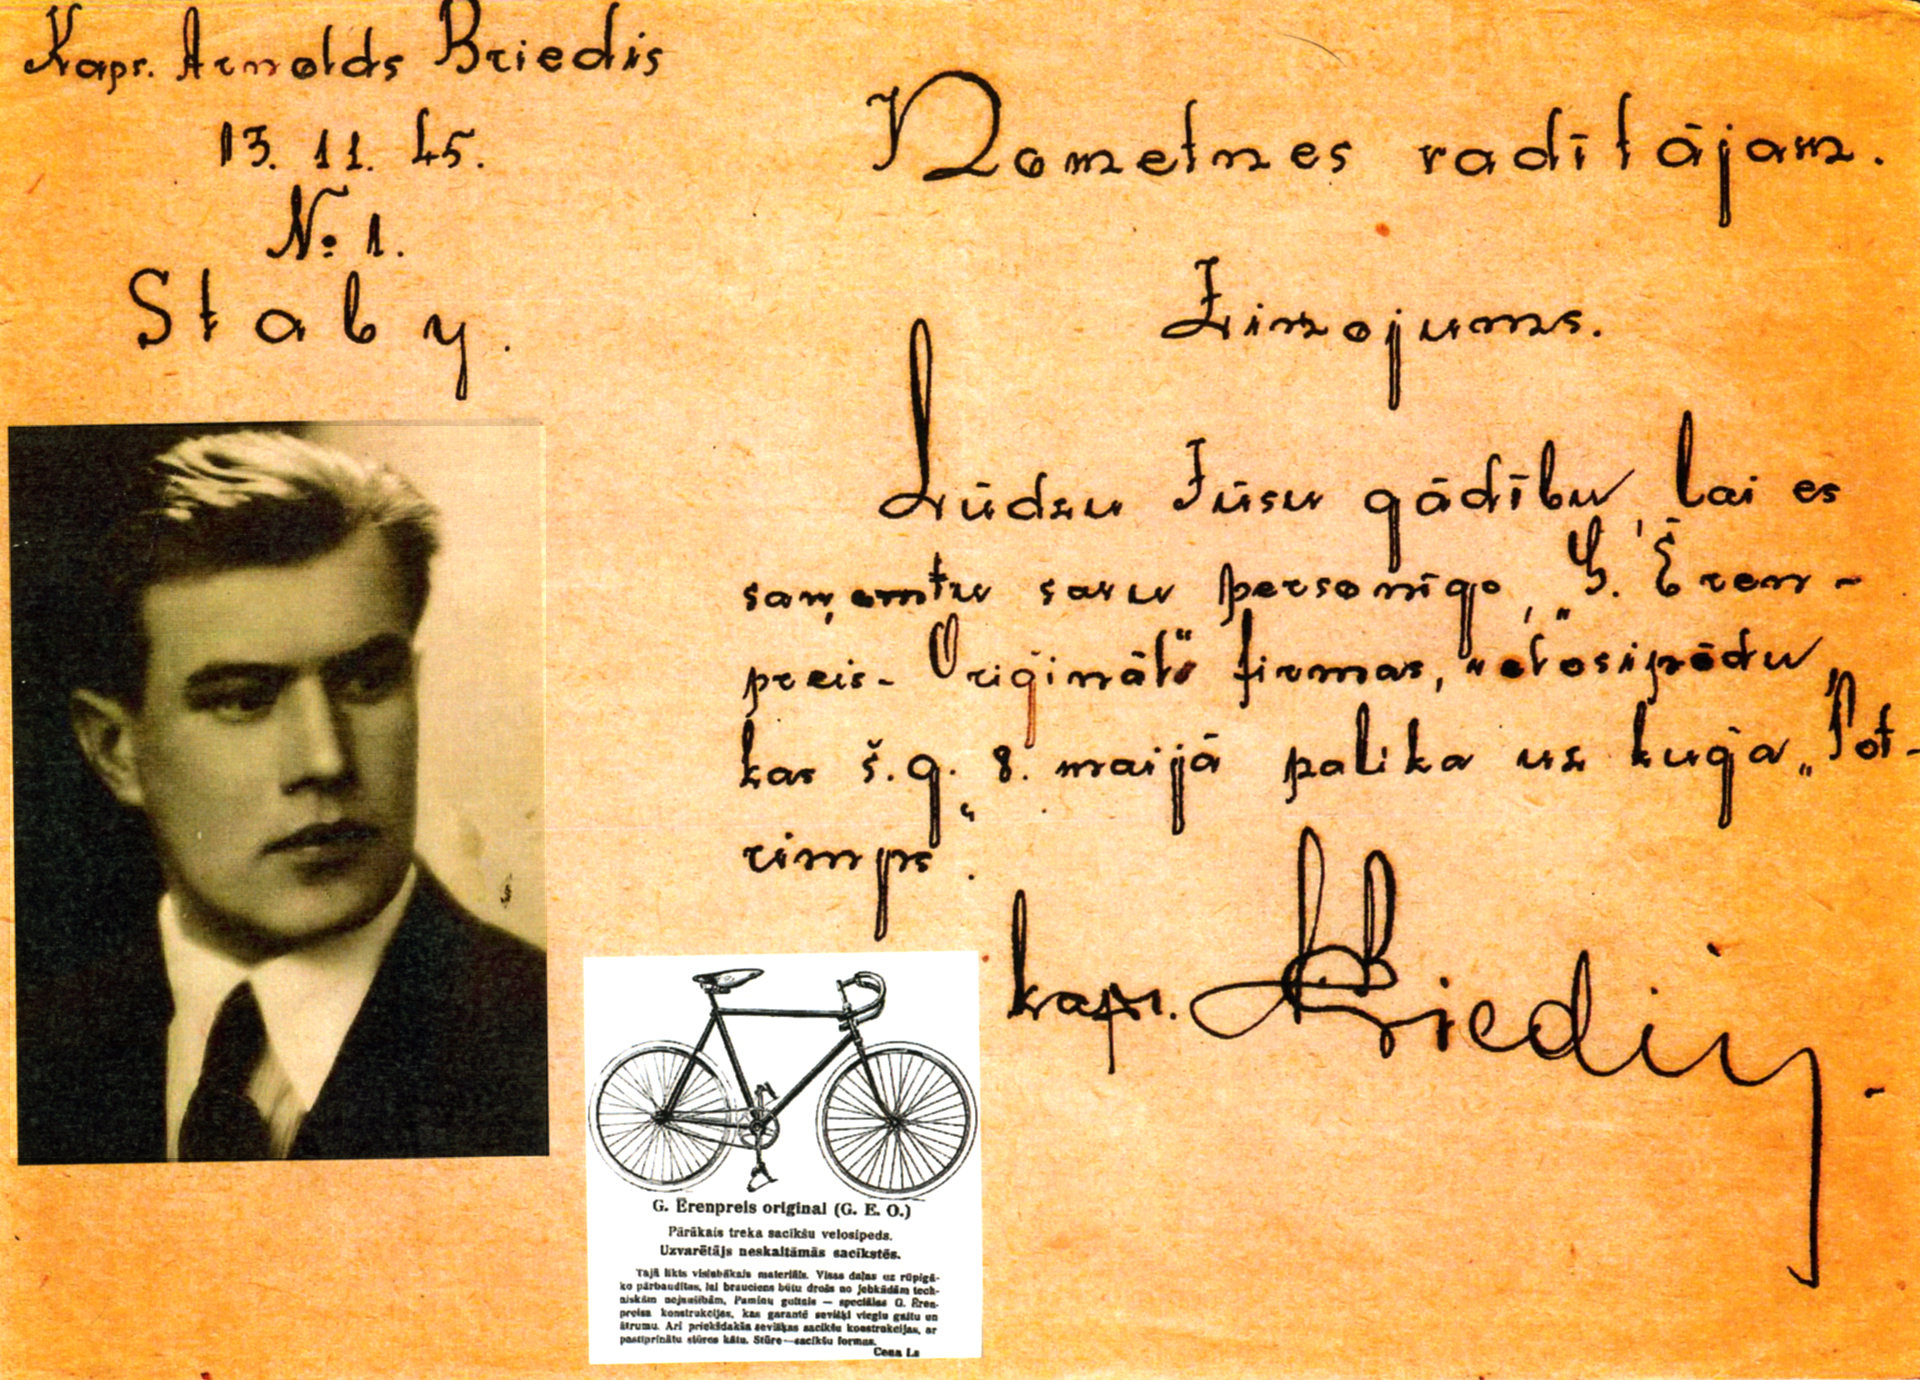 Kapr. Arnolds Briedis
13. 11. 45.
№ 1.
Staby.
Nometnes radītājam.
Ziņojums.
Lūdzu Jūsu gādību, lai es
saņemtu savu personīgo, „G. Ēren-
preis- Oriģināls“ firmas, velosipēdu,
kas š.g. 8. maijā palika uz kuģa „Pot-
rimps“.
kapr. Briedis.
G. Ērenpreis original (G. E. O.)
Pārākais treka sacīkšu velosipeds.
Uzvarētājs neskaitāmās sacīkstēs.
Tajā likts vislabākais materiāls. Visas daļas uz rūpīgā-
ko pārbaudītas, lai brauciens būtu drošs no jebkādām tech-
niskām nejaušībām. Pamiņu gultnis — speciālas G. Ēren-
preisa konstrukcijas, kas garantē sevišķi vieglu gaitu un
ātrumu. Arī priekšdakša sevišķas sacīkšu konstrukcijas, ar
pastiprinātu stūres kātu. Stūre — sacīkšu formas.
Cena Ls